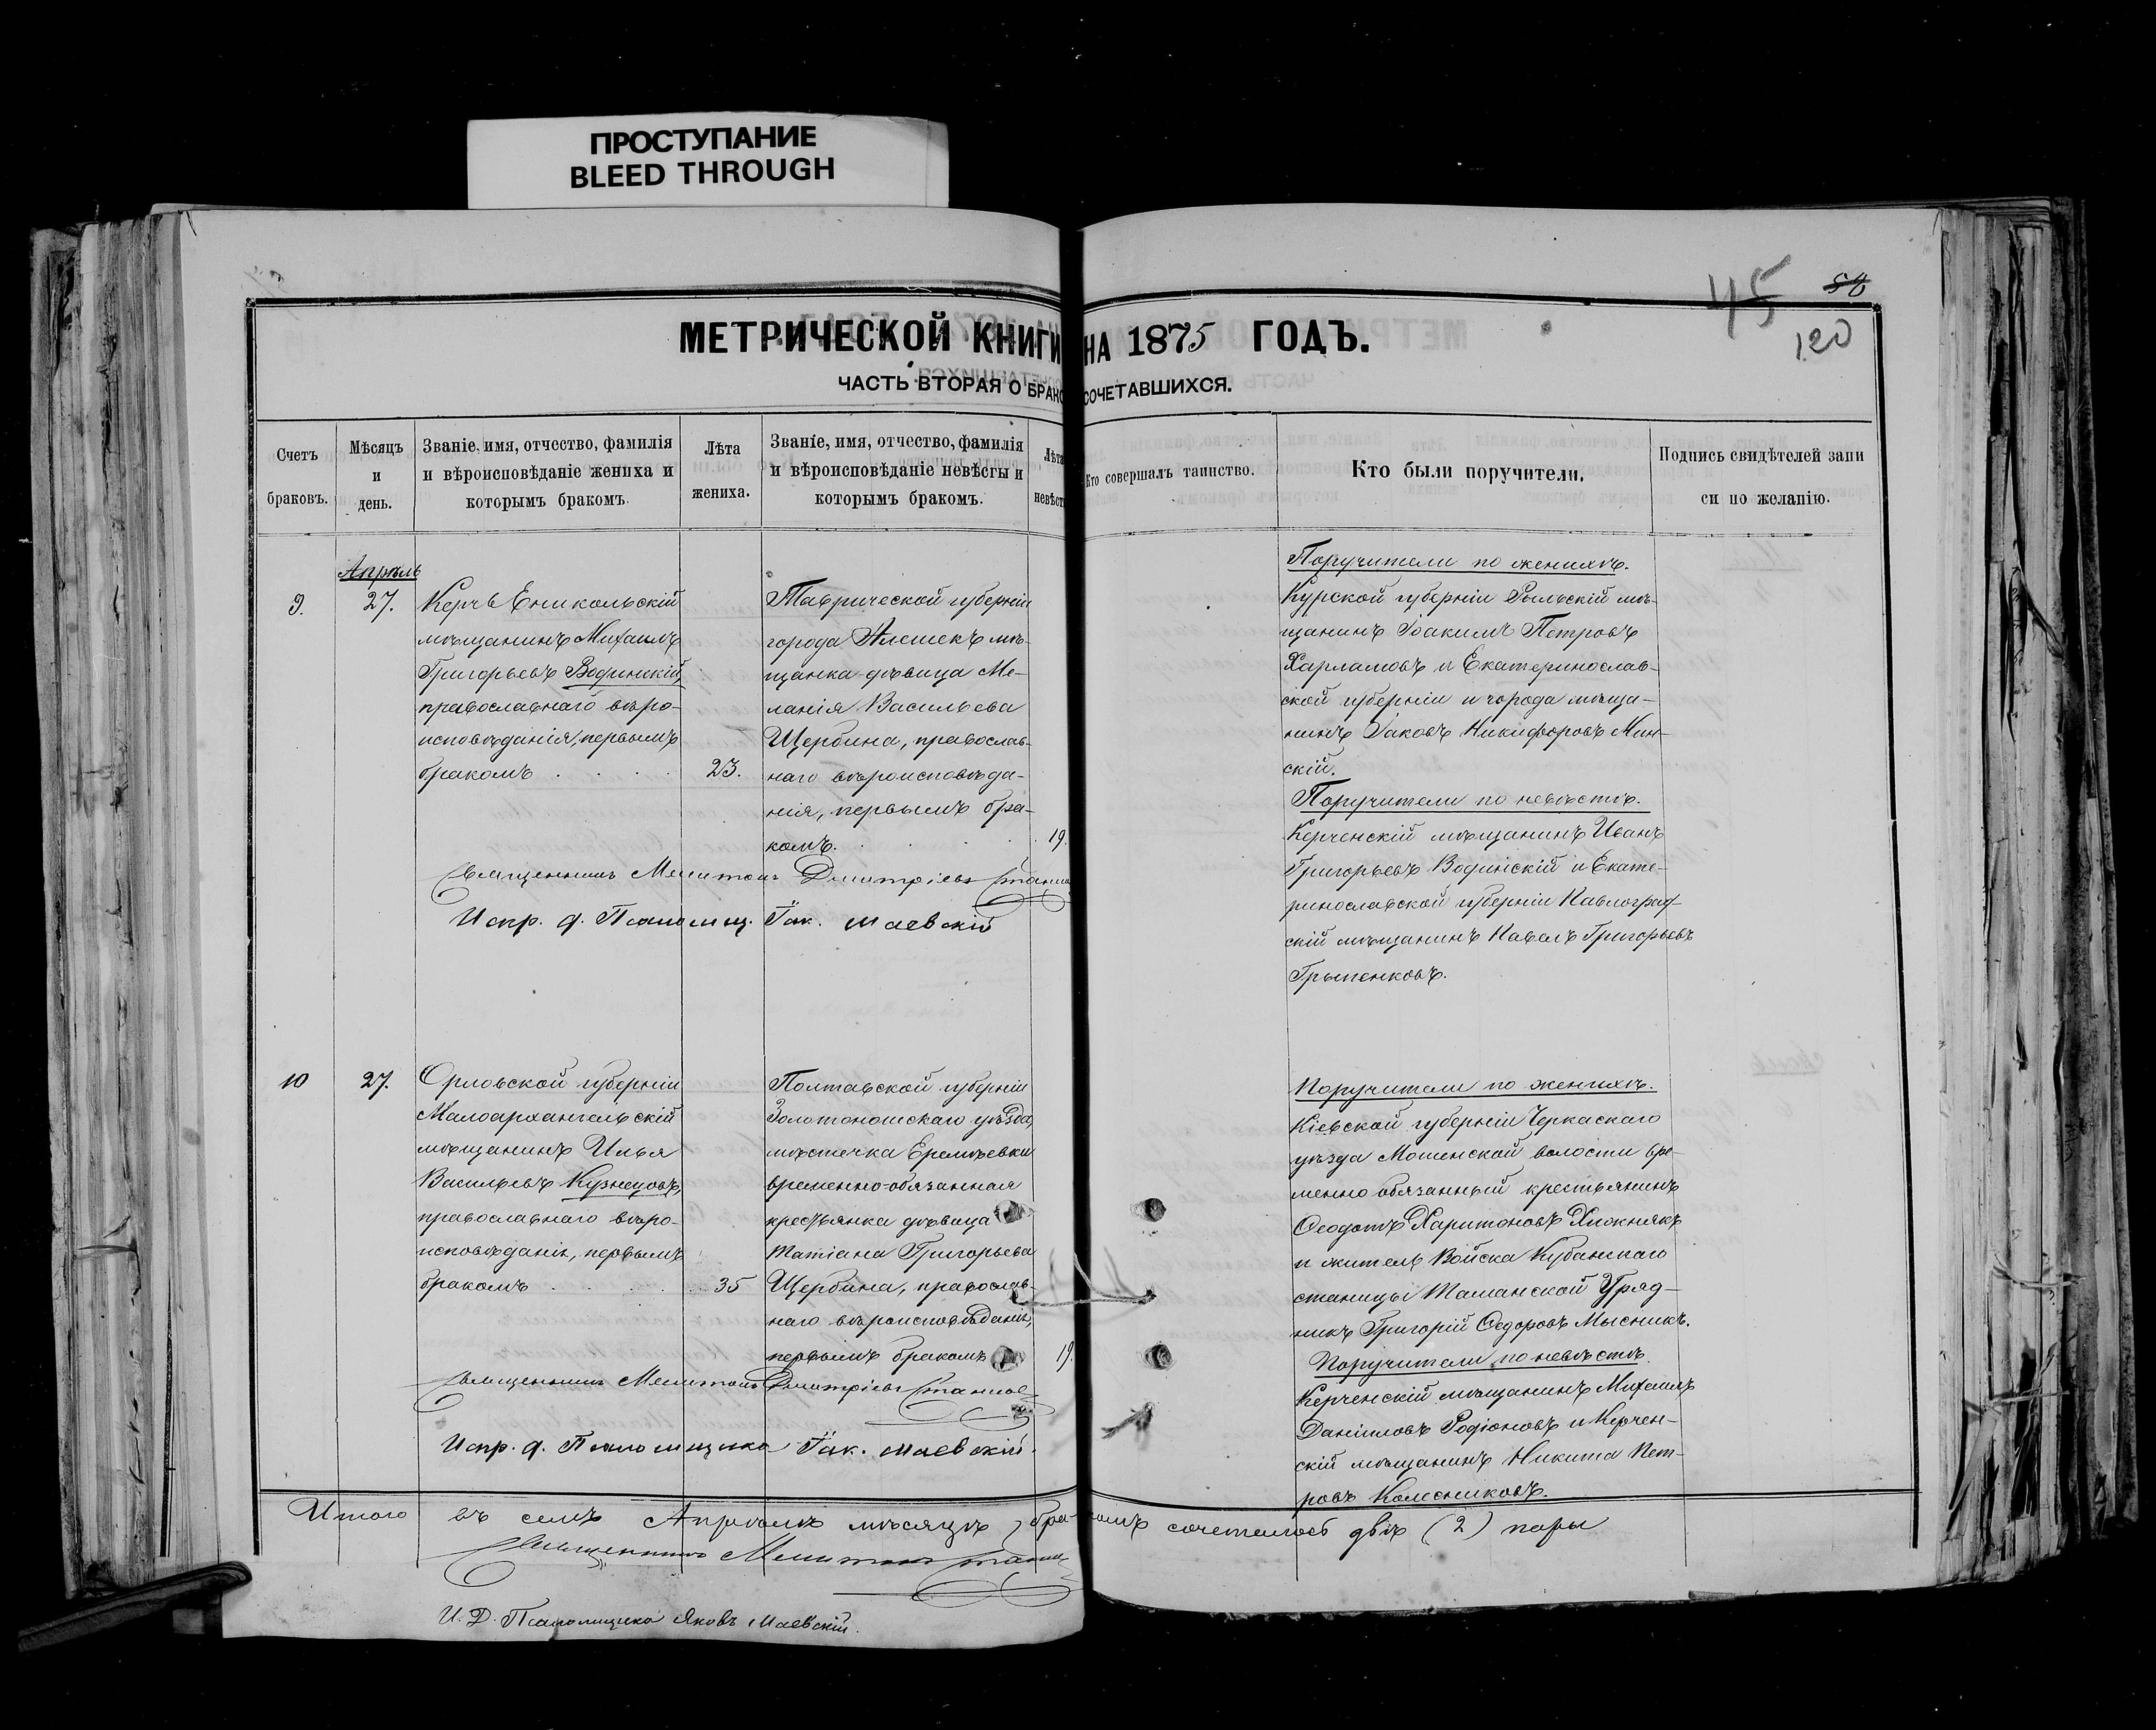 ПРОСТУПАНИЕ
BLEED THROUGH
45
58
120
МЕТРИЧЕСКОЙ КНИГИ НА 1875 ГОДЪ.
ЧАСТЬ ВТОРАЯ О БРАКОСОЧЕТАВШИХСЯ.
Счетъ
браковъ.
Мѣсяцъ
и
день.
Званіе, имя, отчество, фамилія
и вѣроисповѣданіе жениха и
которымъ бракомъ.
Лѣта
жениха.
Званіе, имя, отчество, фамилія
и вѣроисповѣданіе невѣсты и
которымъ бракомъ.
Лѣта
невѣсты
Кто совершалъ таинство.
Кто были поручители.
Подпись свидѣтелей запи
си по желанію.
Апрѣль
9.
27.
Керчь Еникольскій
мѣщанинъ Михаилъ
Григорьевъ Водинскій,
православнаго вѣро-
исповѣданія, первымъ
бракомъ
23.
Таврической губерніи
города Алешекъ мѣ-
щанка дѣвица Ме-
ланія Васильева
Щербина, православ-
наго вѣроисповѣда-
нія, первымъ бра-
комъ.
19.
Священникъ Мелитонъ Дмитріевъ
Испр. д. Псаломщ. Іак. Маевскій
Поручители по женихѣ.
Курской губерніи Рыльскій мѣ-
щанинъ Іоакимъ Петровъ
Харламовъ и Екатеринослав-
ской губерніи и города мѣща-
нинъ Іаковъ Никифоровъ Мин-
скій.
Поручители по невѣстѣ.
Керченскій мѣщанинъ Иванъ
Григорьевъ Водинскій и Екате-
ринославской губерніи Павлоград-
скій мѣщанинъ Павелъ Григорьевъ
10
27.
Орловской губерніи
Малоархангельскій
мѣщанинъ Илья
Васильевъ Кузнецовъ,
православнаго вѣро-
исповѣданія, первымъ
бракомъ
35
Полтавской губерніи
Золотоношскаго уѣзда,
мѣстечка Еремѣевки
временно-обязанная
крестьянка дѣвица
Татіана Григорьева
Щербина, православ-
наго вѣроисповѣданія,
первымъ бракомъ
19.
Священникъ Мелитонъ Дмитріевъ
Испр. д. Псаломщика Іак. Маевскій.
Поручители по женихѣ.
Кіевской губерніи Черкаскаго
уѣзда Мошенской волости вре-
менно обязанный крестьянинъ
Ѳеодотъ Харитоновъ Хижнякъ
и житель Войска Кубанскаго
станицы Таманской Уряд-
никъ Григорій Ѳедоровъ Мысникъ.
Поручители по невѣстѣ.
Керченскій мѣщанинъ Михаилъ
Даніиловъ Родіоновъ и Керчен-
скій мѣщанинъ Никита Пет-
ровъ Колесниковъ.
Итого въ семъ Апрѣлѣ мѣсяцѣ бракомъ сочеталось двѣ (2) пары
Священникъ Мелитонъ
И. Д. Псаломщика Яковъ Маевскій.